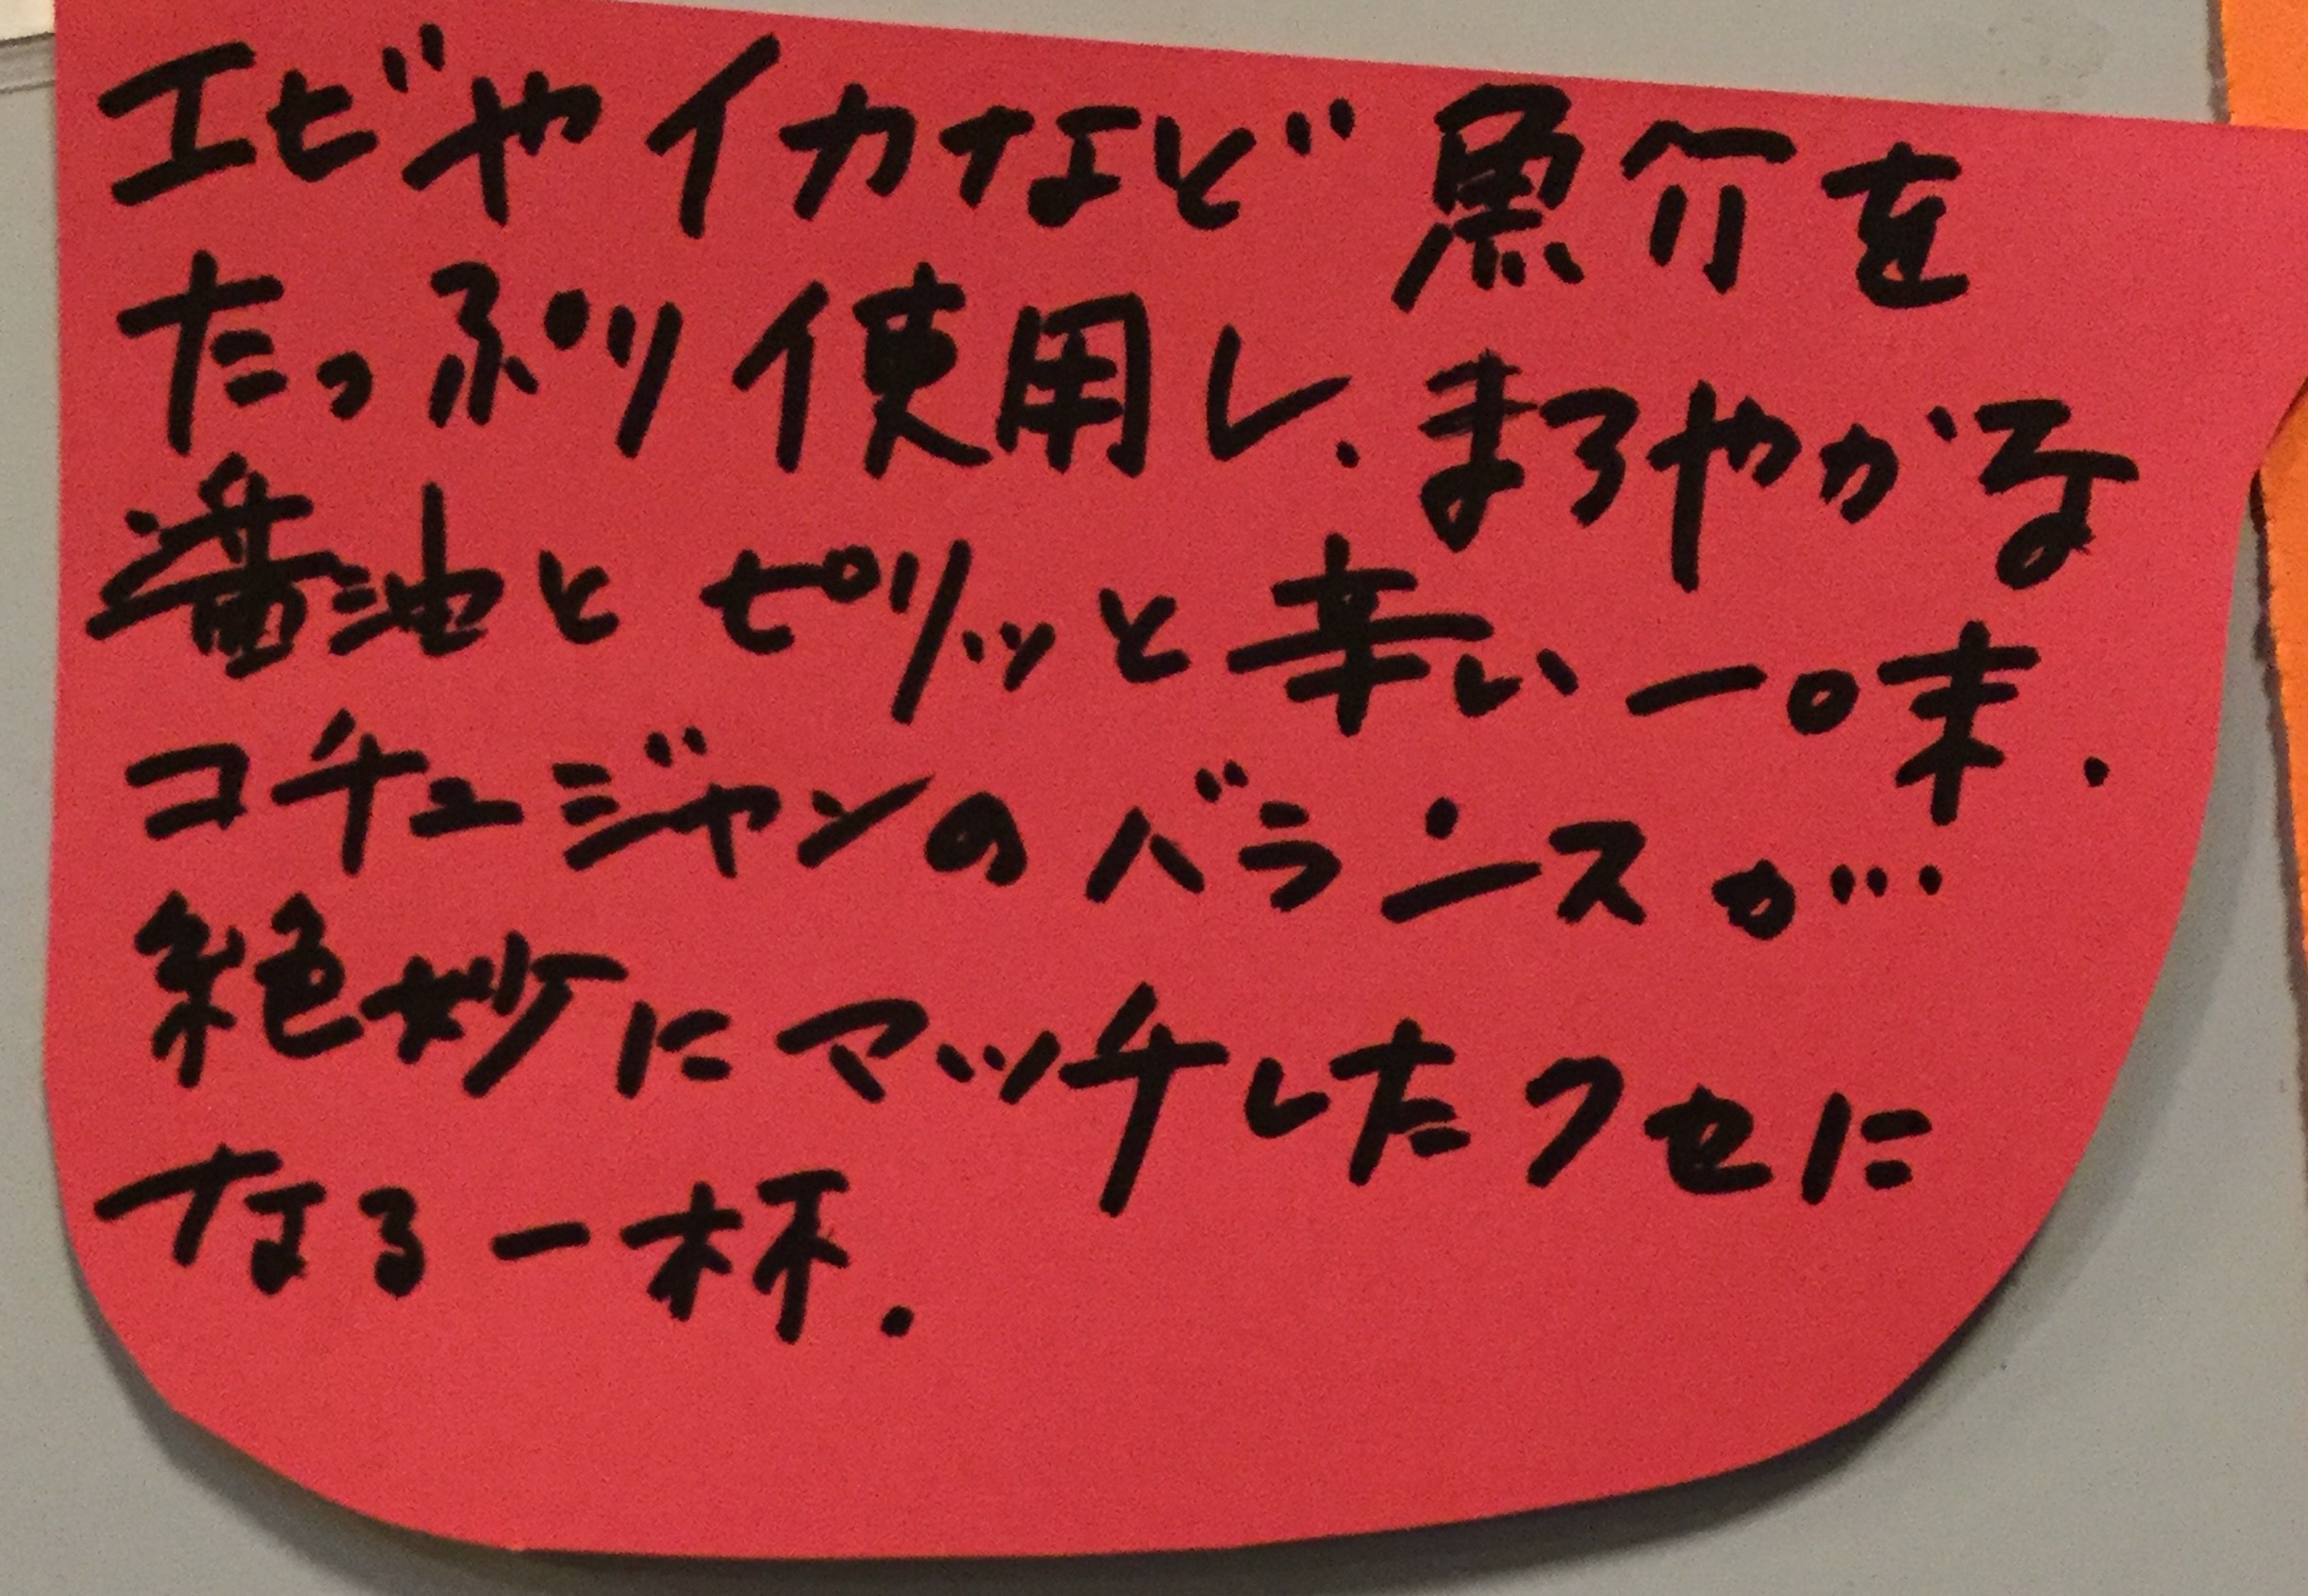 エビやイカなど魚介を
たっぷり使用し、まろやかな
醤油とピリッと辛い一味、
コチュジャンのバランスが…
絶妙にマッチしたクセに
なる一杯.